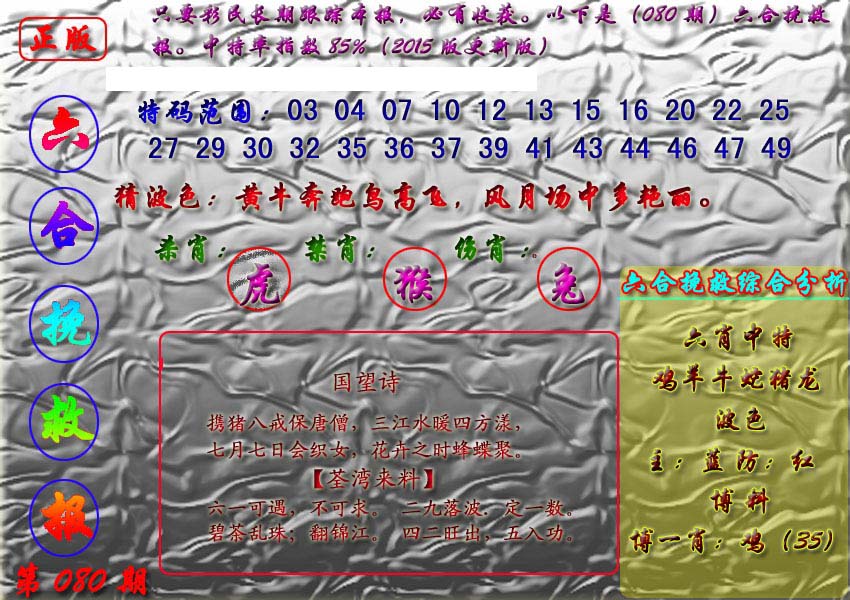 正版
只要彩民长期跟踪本报，必有收获。以下是（080期）六合挽救
报。中特率指数85%（2015版更新版）
六合挽救报
第080期
特码范围：03 04 07 10 12 13 15 16 20 22 25
27 29 30 32 35 36 37 39 41 43 44 46 47 49
猜波色：黄牛奔跑鸟高飞，风月场中多艳丽。
杀肖：虎 禁肖：猴 伤肖：兔
国望诗
携猪八戒保唐僧，三江水暖四方漾，
七月七日会织女，花卉之时蜂蝶聚。
【荃湾来料】
六一可遇，不可求。 二九落波．定一数。
碧茶乱珠；翻锦江。 四二旺出，五入功。
六合挽救综合分析
六肖中特
鸡羊牛蛇猪龙
波色
主：蓝防：红
博料
博一肖：鸡（35）